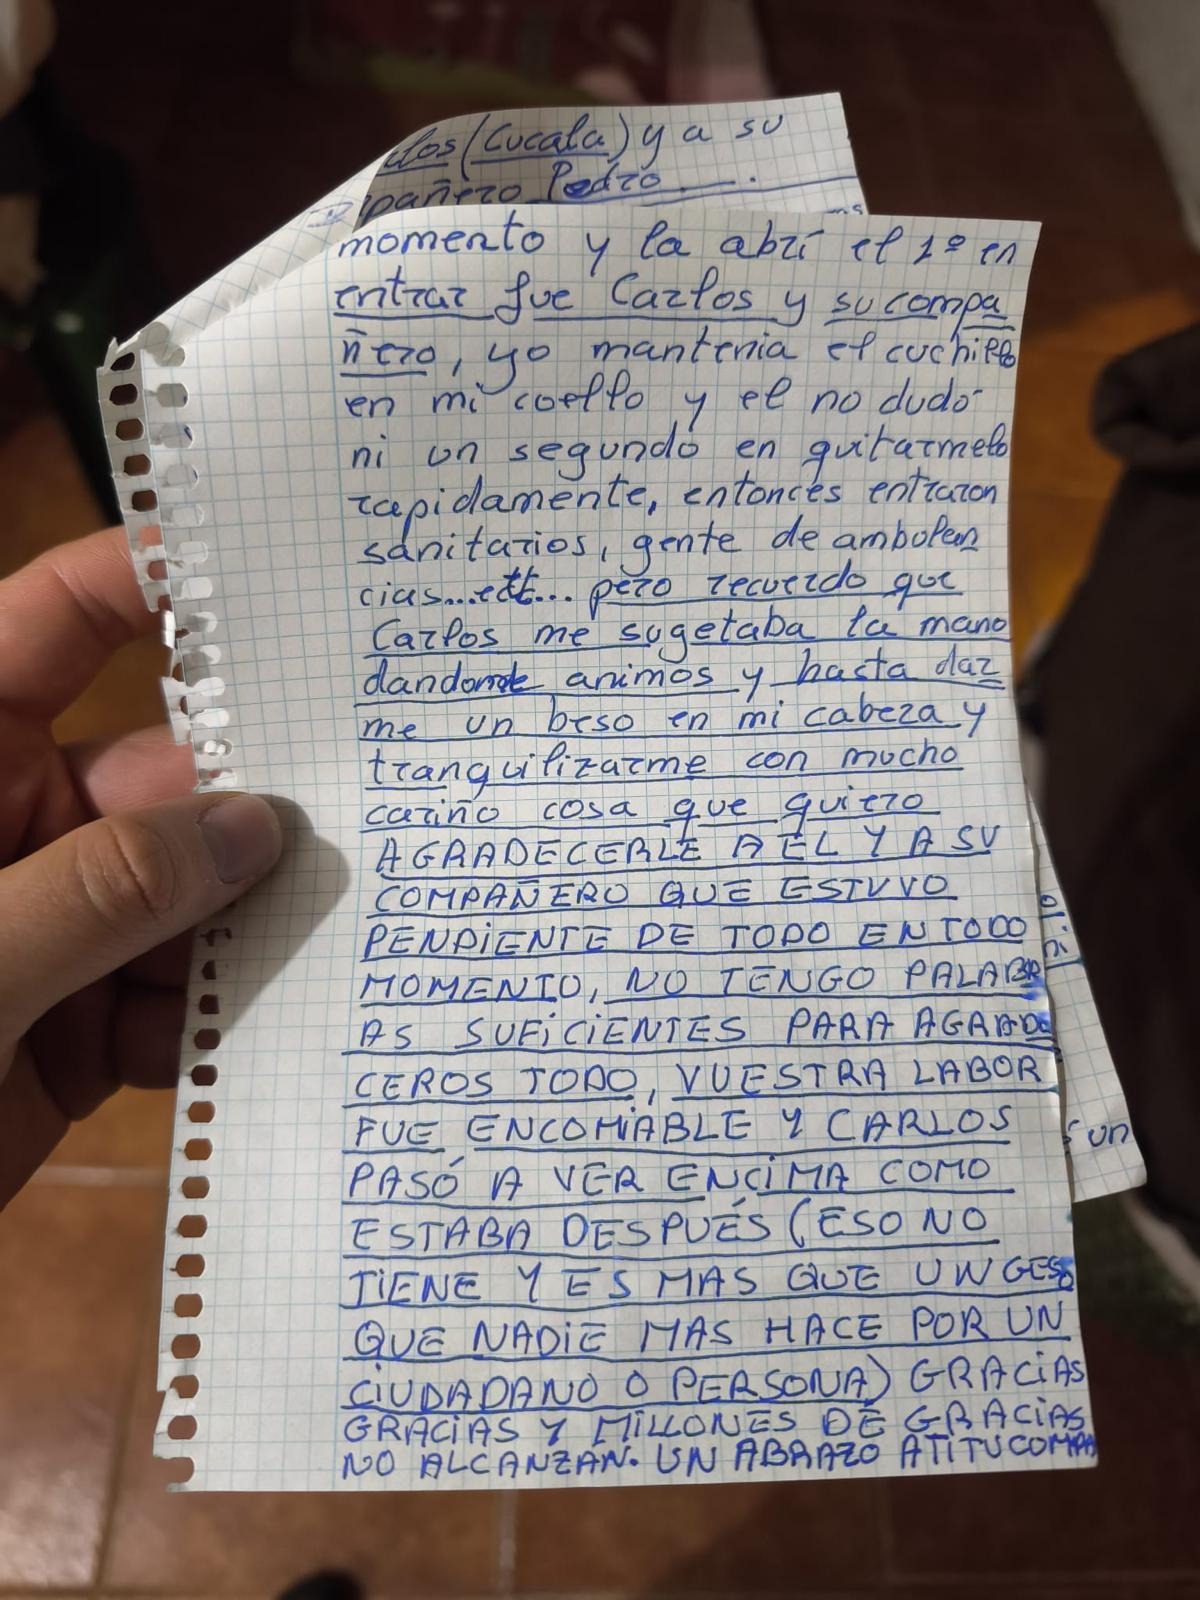 (Cucala) y a su
Pedro......
momento y la abrí el 1º en
entrar fue Carlos y su compa
ñero, yo mantenia el cuchillo
en mi coello y el no dudó
ni un segundo en quitarmelo
rapidamente, entonces entraron
sanitarios, gente de ambolan
cias...ett... pero recuerdo que
Carlos me sugetaba la mano
dandome animos y hasta dar
me un beso en mi cabeza y
tranquilizarme con mucho
cariño cosa que quiero
AGRADECERLE A EL Y A SU
COMPAÑERO QUE ESTUVO
PENDIENTE DE TODO EN TODO
MOMENTO, NO TENGO PALABR
AS SUFICIENTES PARA AGRADE
CEROS TODO, VUESTRA LABOR
FUE ENCOMIABLE Y CARLOS
PASÓ A VER ENCIMA COMO
ESTABA DESPUÉS (ESO NO
TIENE Y ES MAS QUE UN GESO
QUE NADIE MAS HACE POR UN
CIUDADANO O PERSONA) GRACIAS
GRACIAS Y MILLONES DE GRACIAS
NO ALCANZAN. UN ABRAZO A TI TU COMPA
un